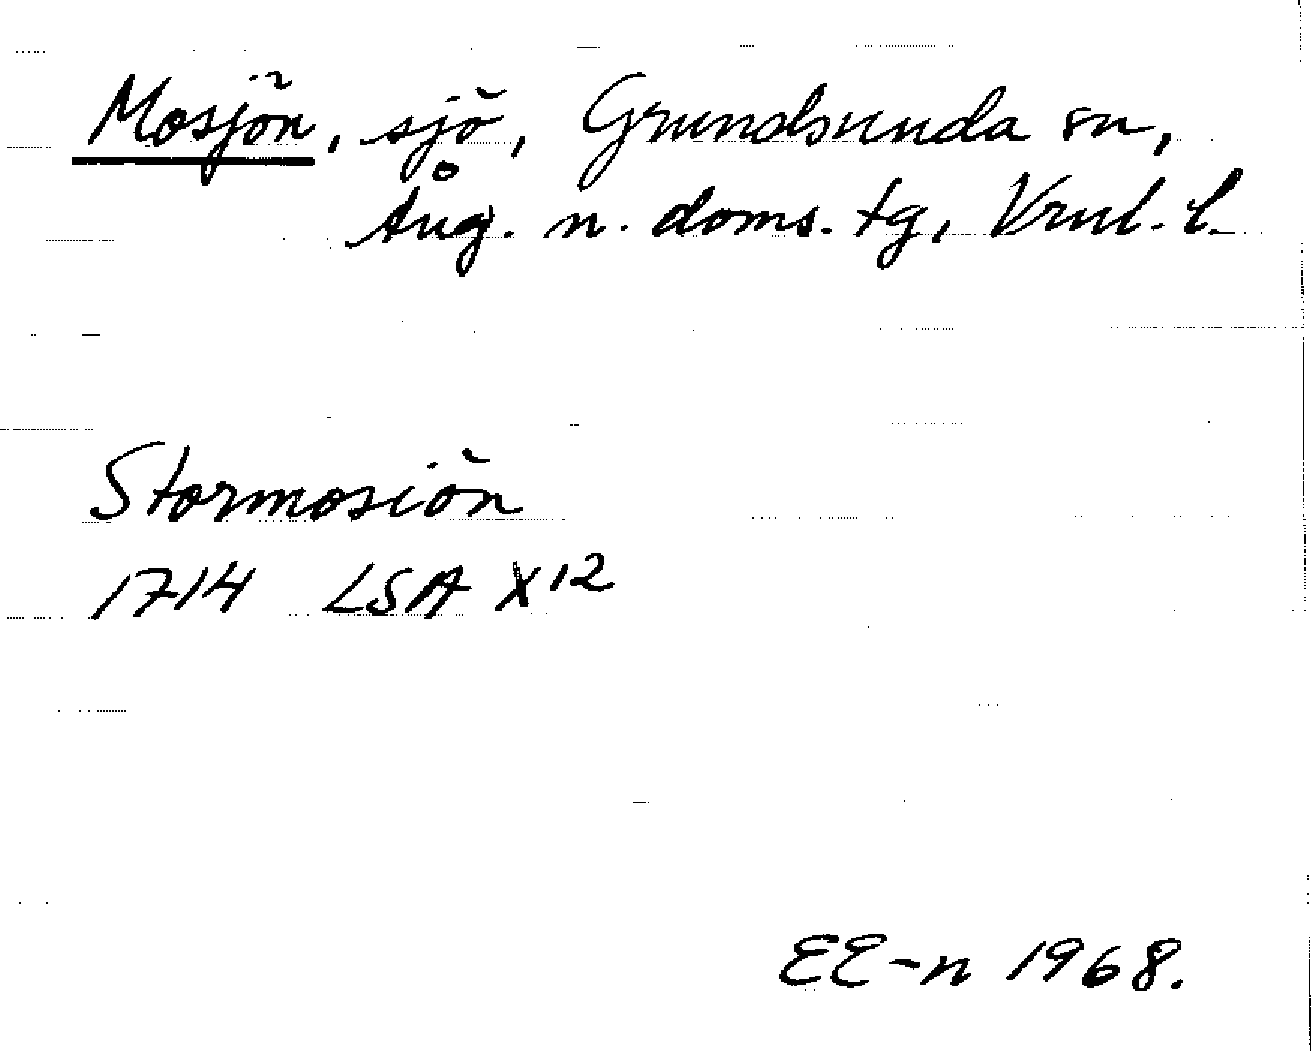 Mosjön, sjö, Grundsunda sn,
Ång. n. doms. tg, Vrnl. l.
Stormosiön
1714 LSA X12
EE-n 1968.